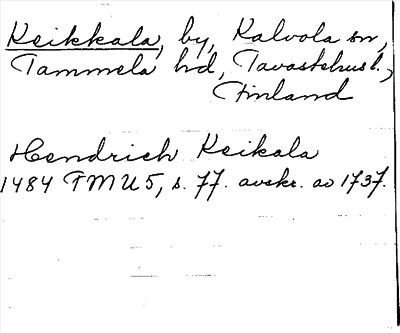 Keikkala, by, Kalvola sn,
Tammela hd, Tavastehus l.,
Finland
Hendrich Keikala
1484 FMU 5, s. 77. avskr. av 1737.